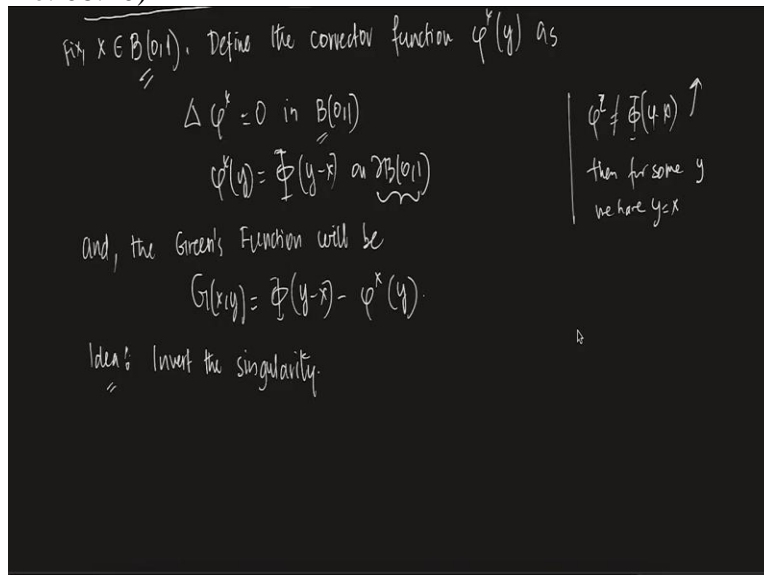 Fix, x ∈ B(0,1). Define the corrector function φˣ(y) as
Δ φˣ = 0 in B(0,1)
φˣ(y) = Φ(y-x) on ∂B(0,1)
φˣ ≠ Φ(y-x) ↑
then for some y
we have y=x
and, the Green's Function will be
G(x,y) = Φ(y-x) - φˣ(y).
Idea: Invert the singularity.